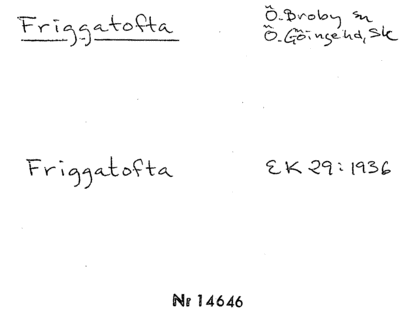 Friggatofta
Ö. Broby sn
Ö. Göinge hd, Sk
Friggatofta
EK 29:1936
Nr 14646